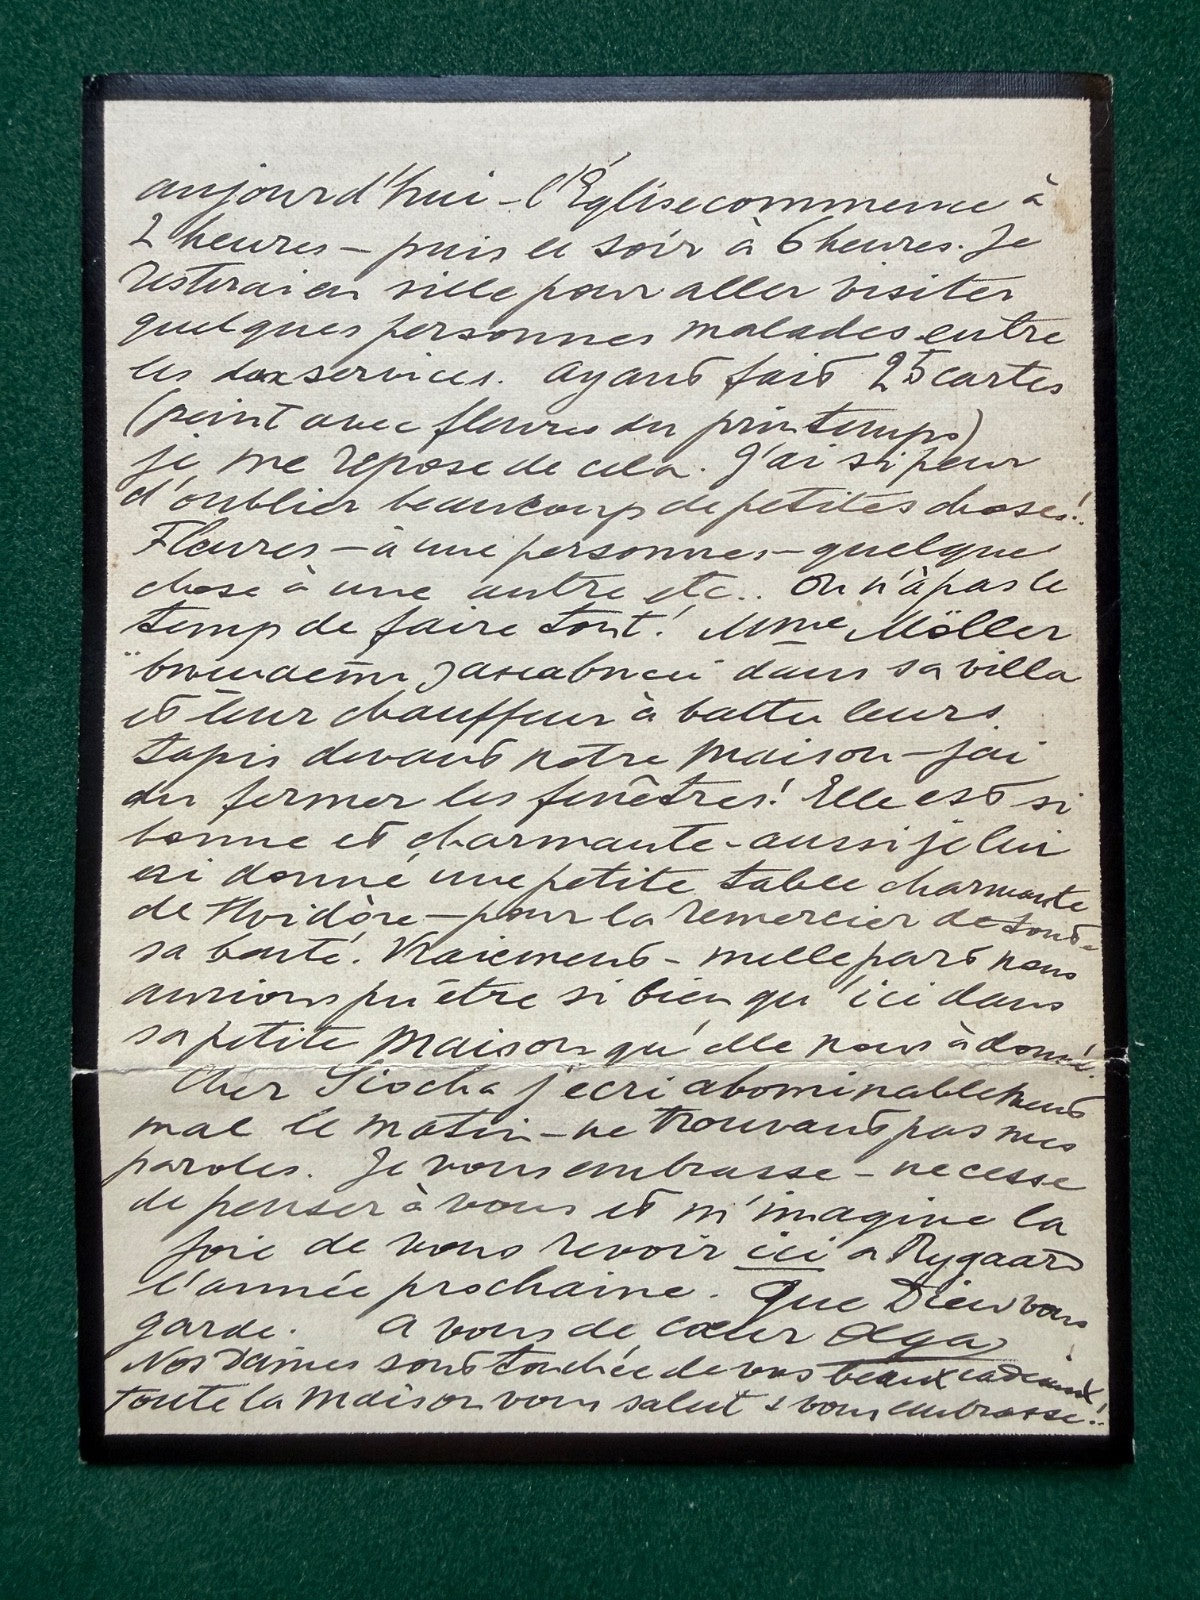 aujourd'hui – l'Église commence à
2 heures – puis le soir à 6 heures. Je
resterai en ville pour aller visiter
quelques personnes malades entre
les deux services. Ayant fait 25 cartes
(peint avec fleures du printemps)
je me repose de cela. J'ai si peur
d'oublier beaucoup de petites choses!.
Fleures – à une personnes – quelque
chose à une autre etc.. On n'à pas le
temp de faire tout! Mme Möller
dans sa villa
et leur chauffeur à battu leurs
tapis devant notre maison – j'ai
du fermer les fenêtres! Elle est si
bonne et charmante – aussi je lui
ai donné une petite table charmante
de Hvidöre – pour la remercier de toute
sa bonté. Vraiement – nulle part nous
aurions pu être si bien qu'ici dans
sa petite maison qu'elle nous à donné.
Cher j'écri abominablement
mal le matin – ne trouvant pas mes
paroles. Je vous embrasse – ne cesse
de penser à vous et m'imagine la
joie de vous revoir ici a Rygaard
l'année prochaine. Que Dieu vous
garde. A vous de cœur Olga
Nos Dames sont touchée de vos beaux cadeaux
toute la maison vous salut & vous embrasse!.